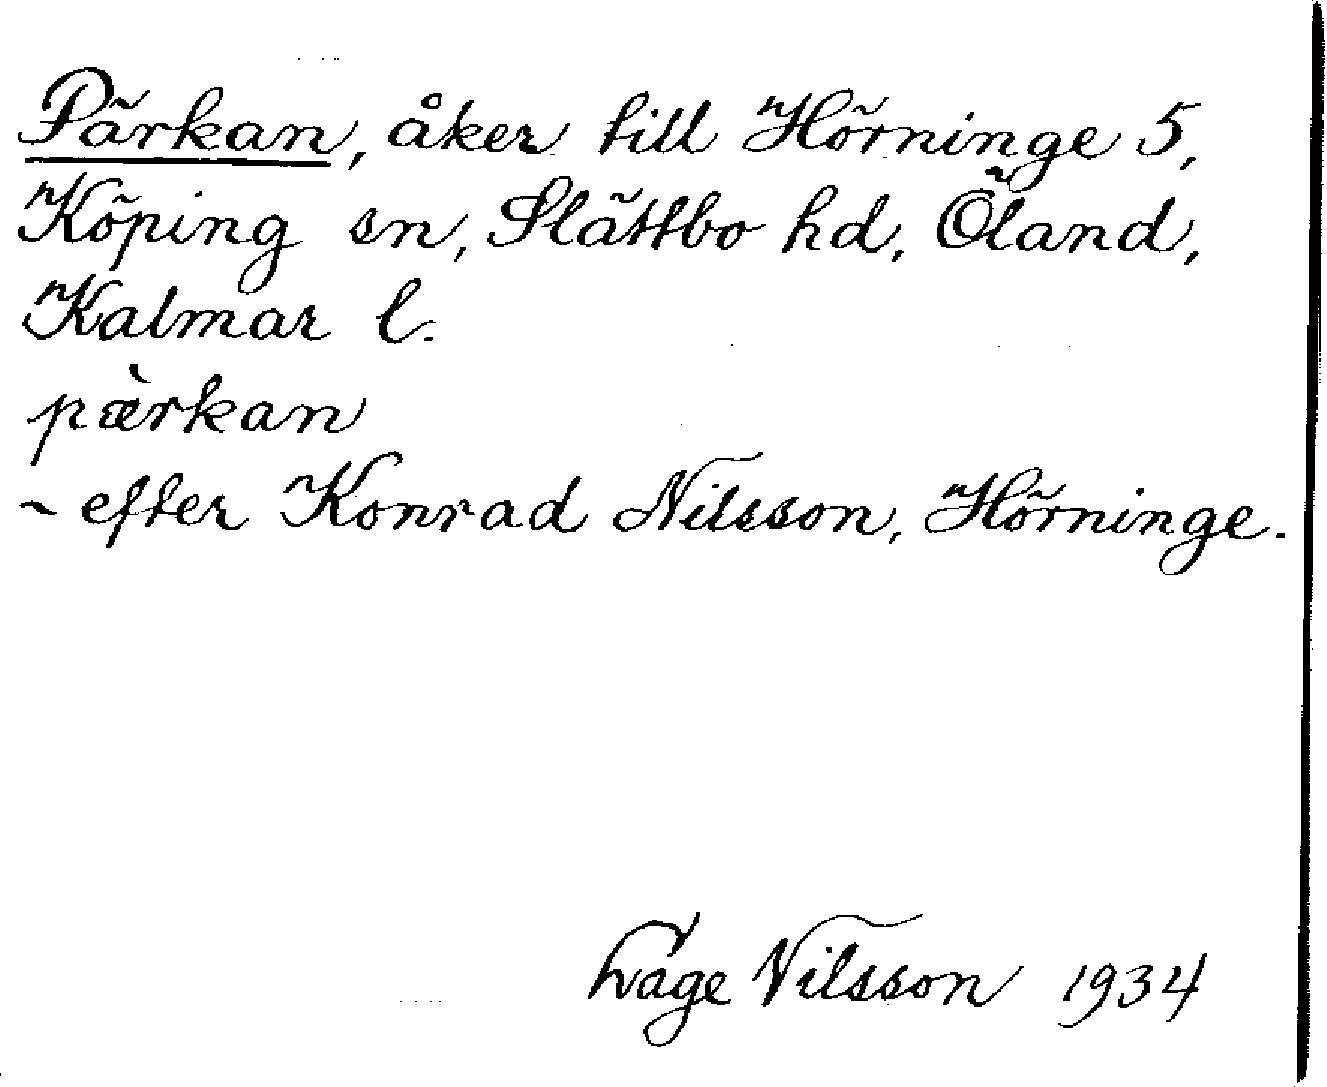 Pärkan, åker till Hörninge 5,
Köping sn, Slättbo hd, Öland,
Kalmar l.
pæ̀rkan
~ efter Konrad Nilsson, Hörninge.
Nilsson 1934